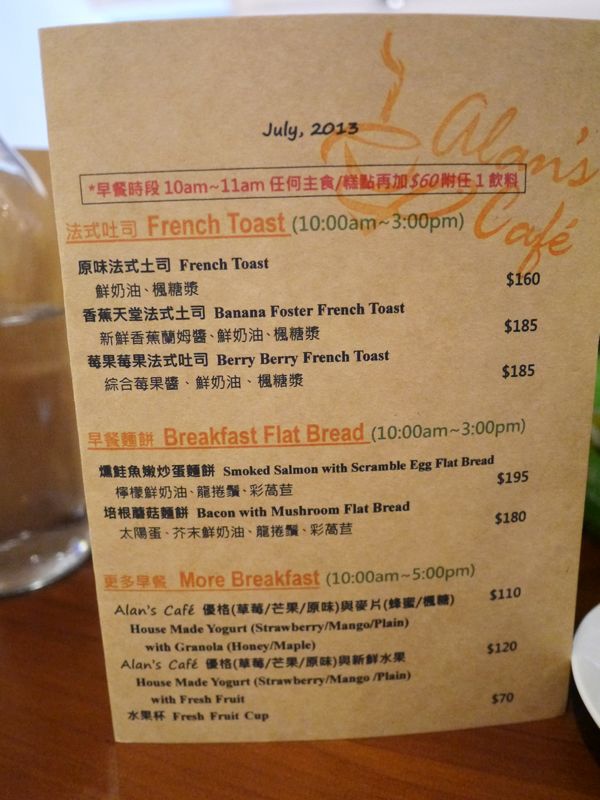 July, 2013
Alan's
Café
*早餐時段 10am~11am 任何主食/糕點再加$60附任1飲料
法式吐司 French Toast (10:00am~3:00pm)
原味法式土司 French Toast $160
鮮奶油、楓糖漿
香蕉天堂法式土司 Banana Foster French Toast $185
新鮮香蕉蘭姆醬、鮮奶油、楓糖漿
莓果莓果法式吐司 Berry Berry French Toast $185
綜合莓果醬、鮮奶油、楓糖漿
早餐麵餅 Breakfast Flat Bread (10:00am~3:00pm)
燻鮭魚嫩炒蛋麵餅 Smoked Salmon with Scramble Egg Flat Bread $195
檸檬鮮奶油、龍捲鬚、彩萵苣
培根蘑菇麵餅 Bacon with Mushroom Flat Bread $180
太陽蛋、芥末鮮奶油、龍捲鬚、彩萵苣
更多早餐 More Breakfast (10:00am~5:00pm)
Alan's Café 優格(草莓/芒果/原味)與麥片(蜂蜜/楓糖) $110
House Made Yogurt (Strawberry/Mango/Plain)
with Granola (Honey/Maple)
Alan's Café 優格(草莓/芒果/原味)與新鮮水果 $120
House Made Yogurt (Strawberry/Mango /Plain)
with Fresh Fruit
水果杯 Fresh Fruit Cup $70